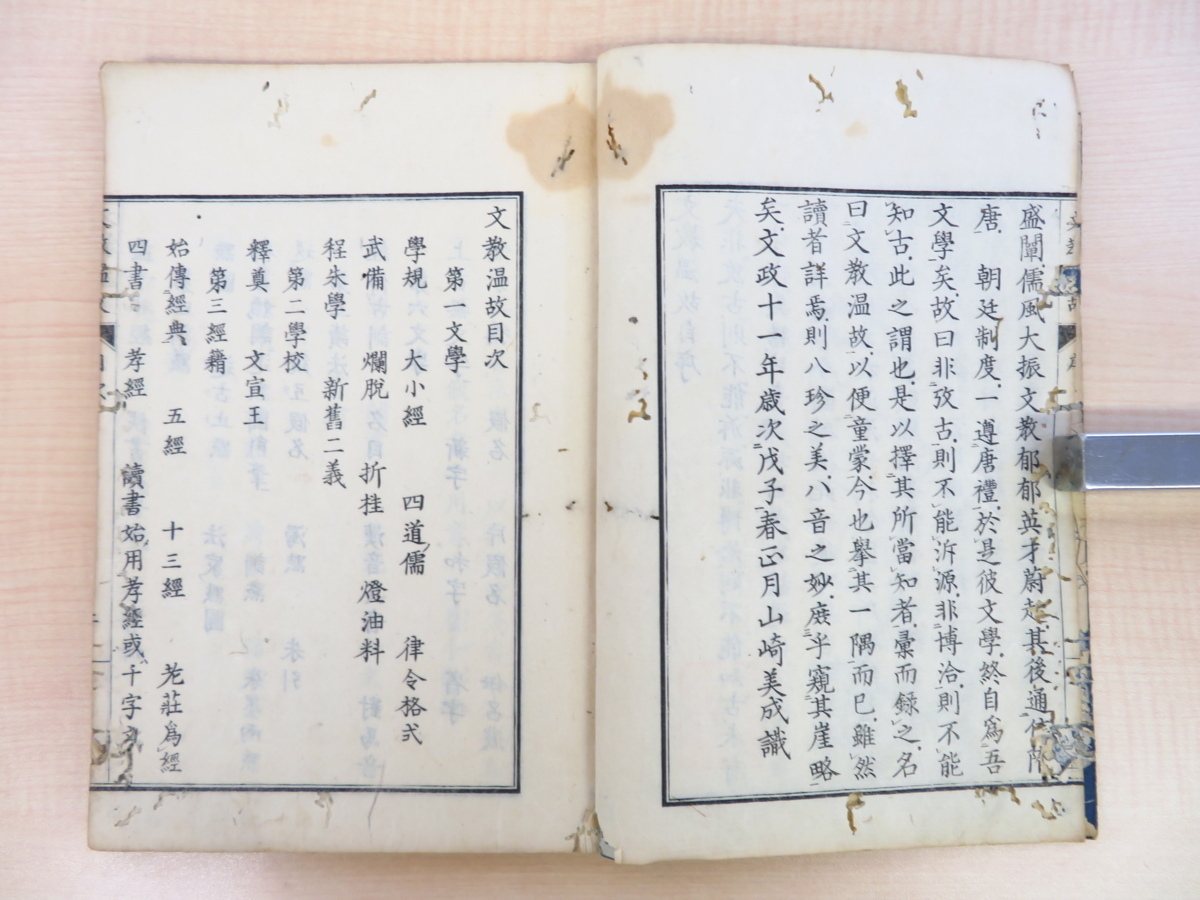 盛闡儒風大振文教郁郁英才蔚起其後通
唐 朝廷制度一遵唐禮於是彼文學終自爲吾
文學矣故曰非攷古則不能泝源非博洽則不能
知古此之謂也是以擇其所當知者彙而録之名
曰文教温故以便童蒙今也擧其一隅而已雖然
讀者詳焉則八珍之美八音之妙庶乎窺其崖略
矣文政十一年歳次戊子春正月山崎美成識
文教温故目次
第一文學
學規 大小經 四道儒 律令格式
武備 爛脱 折桂 燈油料
程朱學 新舊二義
第二學校
釋奠 文宣王
第三經籍
始傳經典 五經 十三經 老莊爲經
四書 孝經 讀書始用孝經或千字文